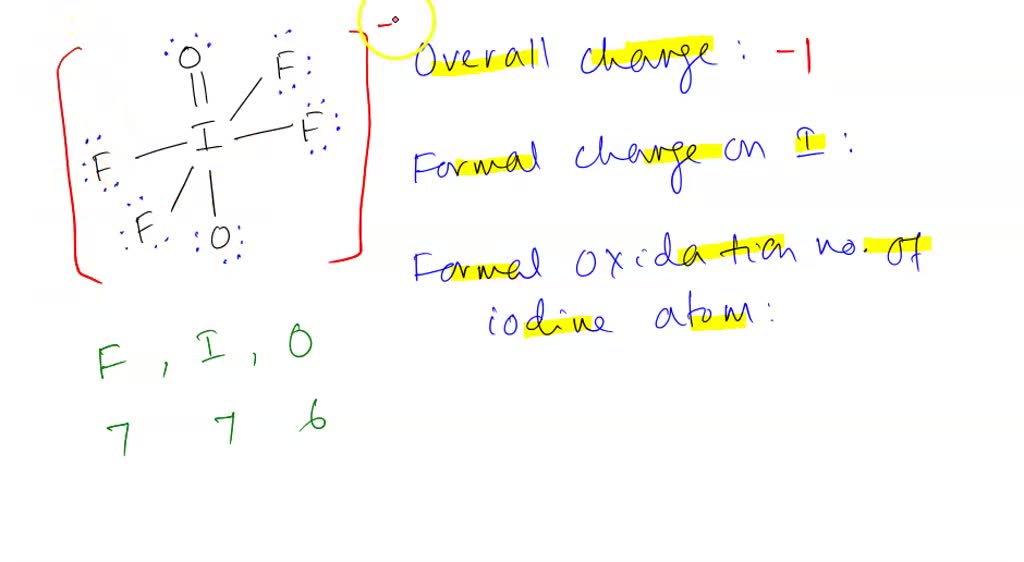 O
F
I
F
F
F
O
−
Overall charge : -1
Formal charge on I :
Formal oxidation no. of
iodine atom :
F , I , O
7 7 6